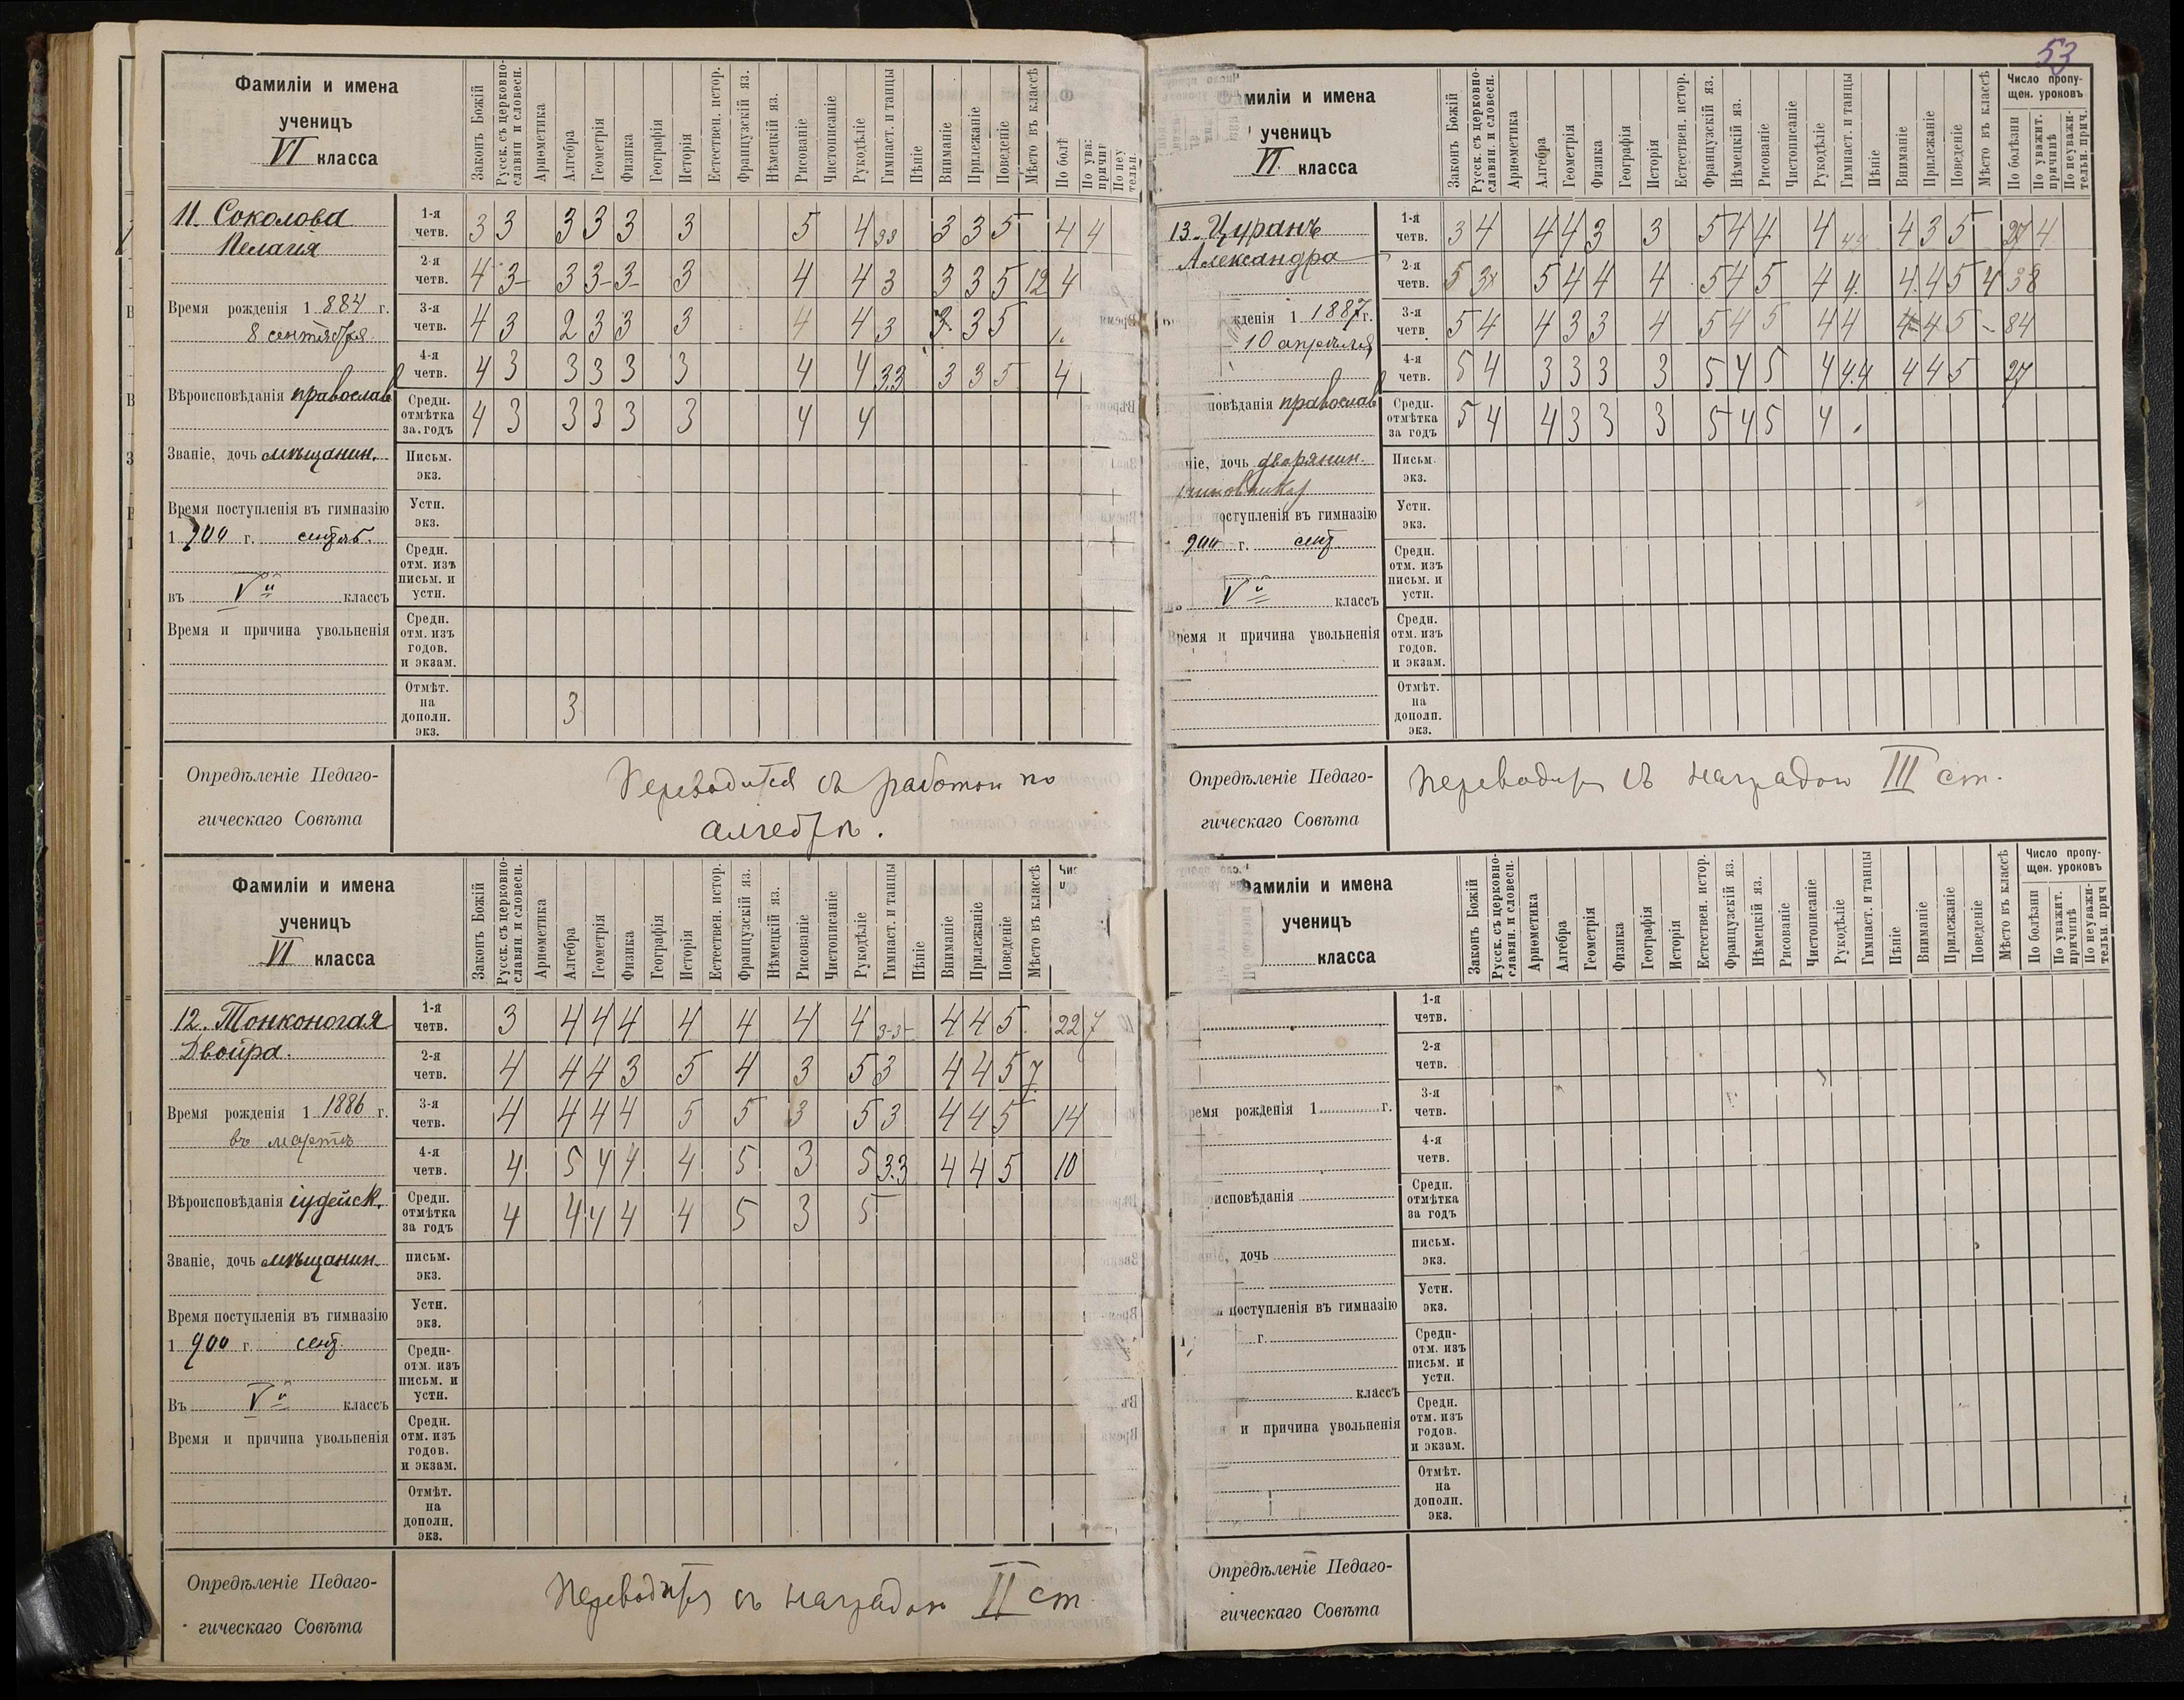 53
Фамиліи и имена
ученицъ
VI класса
Законъ Божій
Русск. съ церковно-
славян. и словесн.
Ариѳметика
Алгебра
Геометрія
Физика
Географія
Исторія
Естествен. истор.
Французскій яз.
Нѣмецкій яз.
Рисованіе
Чистописаніе
Рукодѣліе
Гимнаст. и танцы
Пѣніе
Вниманіе
Прилежаніе
Поведеніе
Мѣсто въ классѣ
11. Соколова
Пелагія
Время рожденія 1 884 г.
8 сентября
Вѣроисповѣданія православ
Званіе, дочь мѣщанин.
Время поступленія въ гимназію
1 900 г. сентяб.
въ V й классъ
Время и причина увольненія
1-я четв. 3 3 3 3 3 3 5 4 33 3 3 5 4 4
2-я четв. 4 3- 3 3- 3- 3 4 4 3 3 3 5 12 4
3-я четв. 4 3 2 3 3 3 4 4 3 3 3 5
4-я четв. 4 3 3 3 3 3 4 4 3.3 3 3 5 4
Средн. отмѣтка за годъ 4 3 3 3 3 3 4 4
Письм. экз.
Устн. экз.
Средн. отм. изъ письм. и устн.
Средн. отм. изъ годов. и экзам.
Отмѣт. на дополн. экз. 3
Опредѣленіе Педаго-
гическаго Совѣта
Переводится съ работой по
алгебрѣ.
Фамиліи и имена
ученицъ
VI класса
Законъ Божій
Русск. съ церковно-
славян. и словесн.
Ариѳметика
Алгебра
Геометрія
Физика
Географія
Исторія
Естествен. истор.
Французскій яз.
Нѣмецкій яз.
Рисованіе
Чистописаніе
Рукодѣліе
Гимнаст. и танцы
Пѣніе
Вниманіе
Прилежаніе
Поведеніе
Мѣсто въ классѣ
12. Тонконогая
Двойра.
Время рожденія 1 1886 г.
въ мартѣ
Вѣроисповѣданія іудейск.
Званіе, дочь мѣщанин.
Время поступленія въ гимназію
1 900 г. сент.
Въ V й классъ
Время и причина увольненія
1-я четв. 3 4 4 4 4 4 4 4 3-3- 4 4 5 22 7
2-я четв. 4 4 4 3 5 4 3 5 3 4 4 5 7
3-я четв. 4 4 4 4 5 5 3 5 3 4 4 5 14
4-я четв. 4 5 4 4 4 5 3 5 3.3 4 4 5 10
Средн. отмѣтка за годъ 4 4 4 4 4 5 3 5
письм. экз.
Устн. экз.
Средн- отм. изъ письм. и устн.
Средн. отм. изъ годов. и экзам.
Отмѣт. на дополн. экз.
Опредѣленіе Педаго-
гическаго Совѣта
Переводится съ наградою II ст.
миліи и имена
ученицъ
VI класса
Законъ Божій
Русск. съ церковно-
славян. и словесн.
Ариѳметика
Алгебра
Геометрія
Физика
Географія
Исторія
Естествен. истор.
Французскій яз.
Нѣмецкій яз.
Рисованіе
Чистописаніе
Рукодѣліе
Гимнаст. и танцы
Пѣніе
Вниманіе
Прилежаніе
Поведеніе
Мѣсто въ классѣ
Число пропу-
щен. уроковъ
По болѣзни
По уважит. причинѣ
По неуважи- тельн. прич.
13. Цуранъ
Александра
жденія 1 1887 г.
10 апрѣля
повѣданія православ
ніе, дочь дворянин.
чиновника
поступленія въ гимназію
900 г. сент.
V й классъ
Время и причина увольненія
1-я четв. 3 4 4 4 3 3 5 4 4 4 4 4 4 3 5 27 4
2-я четв. 5 3 5 4 4 4 5 4 5 4 4. 4 4 5 4 38
3-я четв 5 4 4 3 3 4 5 4 5 4 4 4 4 5 - 84
4-я четв. 5 4 3 3 3 3 5 4 5 4 4.4 4 4 5 27
Средн. отмѣтка за годъ 5 4 4 3 3 3 5 4 5 4
Письм. экз.
Устн. экз.
Средн. отм. изъ письм. и устн.
Средн. отм. изъ годов. и экзам.
Отмѣт. на дополн. экз.
Опредѣленіе Педаго-
гическаго Совѣта
Переводится съ наградою III ст.
Фамиліи и имена
ученицъ
класса
Законъ Божій
Русск. съ церковно-
славян. и словесн.
Ариѳметика
Алгебра
Геометрія
Физика
Географія
Исторія
Естествен. истор.
Французскій яз.
Нѣмецкій яз.
Рисованіе
Чистописаніе
Рукодѣліе
Гимнаст. и танцы
Пѣніе
Вниманіе
Прилежаніе
Поведеніе
Мѣсто въ классѣ
Число пропу-
щен. уроковъ
По болѣзни
По уважит. причинѣ
По неуважи- тельн. прич
ремя рожденія 1 г.
исповѣданія
дочь
поступленія въ гимназію
г.
классъ
и причина увольненія
1-я четв.
2-я четв.
3-я четв.
4-я четв.
Средн. отмѣтка за годъ
письм. экз.
Устн. экз.
Средн- отм. изъ письм. и устн.
Средн. отм. изъ годов. и экзам.
Отмѣт. на дополн. экз.
Опредѣленіе Педаго-
гическаго Совѣта